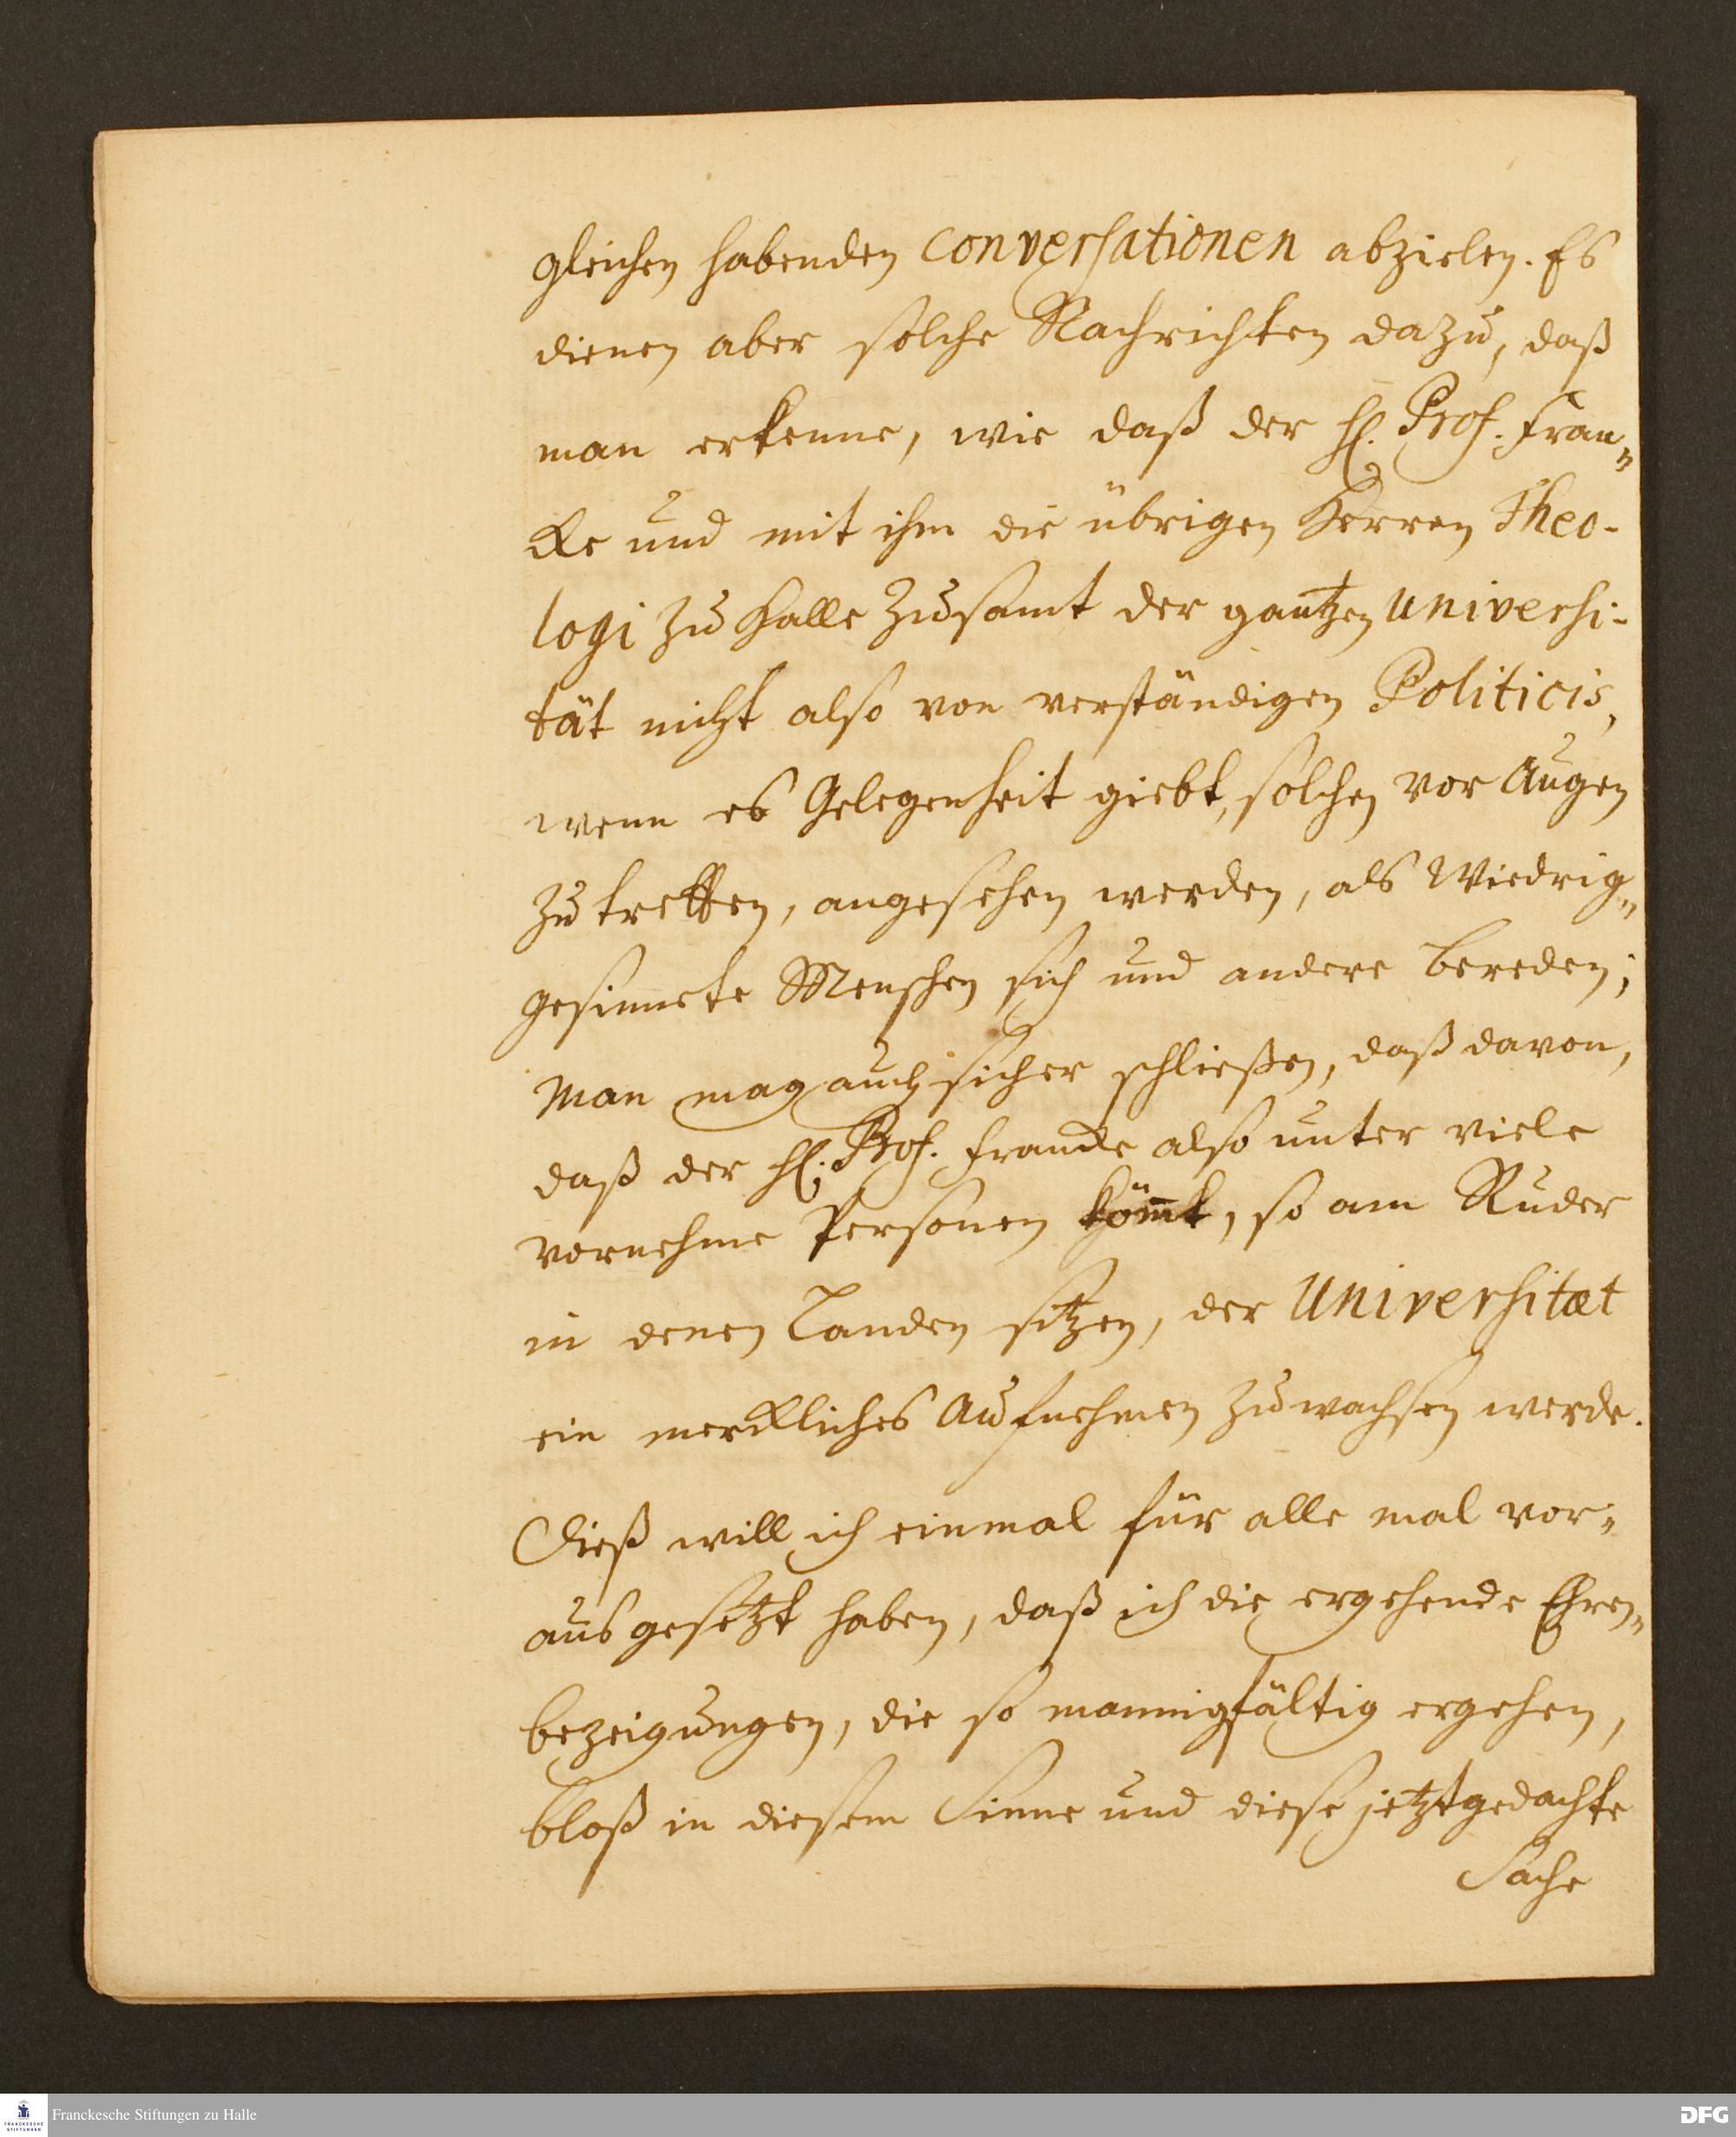 gleichen habenden conversationen abzielen. Es
dienen aber solche Nachrichten dazu, daß
man erkenne, wie daß der H. Prof. Fran„
cke und mit ihm die übrigen Herren Theo-
logi zu Halle zusamt der gantzen universi-
tät nicht also von verständigen Politicis,
wenn es Gelegenheit giebt, solchen vor Augen
zu tretten, angesehen werden, als Wiedrig„
gesinnete Menschen sich und andere bereden;
Man mag auch sicher schließen, daß davon,
daß der H. Prof. Francke also unter viele
vornehme Personen kom̄t, so am Ruder
in denen Landen sitzen, der Universitæt
ein merckliches Aufnehmen zuwachsen werde.
Dieß will ich einmal für alle mal vor„
aus gesetzt haben, daß ich die ergehende Ehren„
bezeigungen, die so mannigfältig ergehen,
bloß in diesem Sinne und diese jetztgedachte
Sache
Franckesche Stiftungen zu Halle
FRANCKESCHE
STIFTUNGEN
DFG